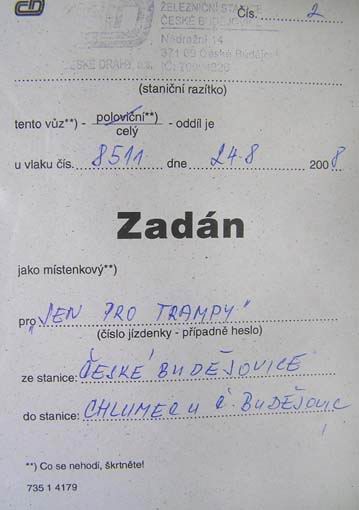 ČD
ŽELEZNIČNÍ STANICE
ČESKÉ BUDĚJOVICE
Čís. 2
Nádražní 14
371 09 České Budějov
ČESKÉ DRÁHY, a.s. IČ:
(staniční razítko)
tento vůz**) - poloviční**) - oddíl je
celý
u vlaku čís. 8511 dne 24.8 2008
Zadán
jako místenkový**)
pro "JEN PRO TRAMPY"
(číslo jízdenky - případně heslo)
ze stanice: ČESKÉ BUDĚJOVICE
do stanice: CHLUMEC U Č. BUDĚJOVIC
**) Co se nehodí, škrtněte!
735 1 4179